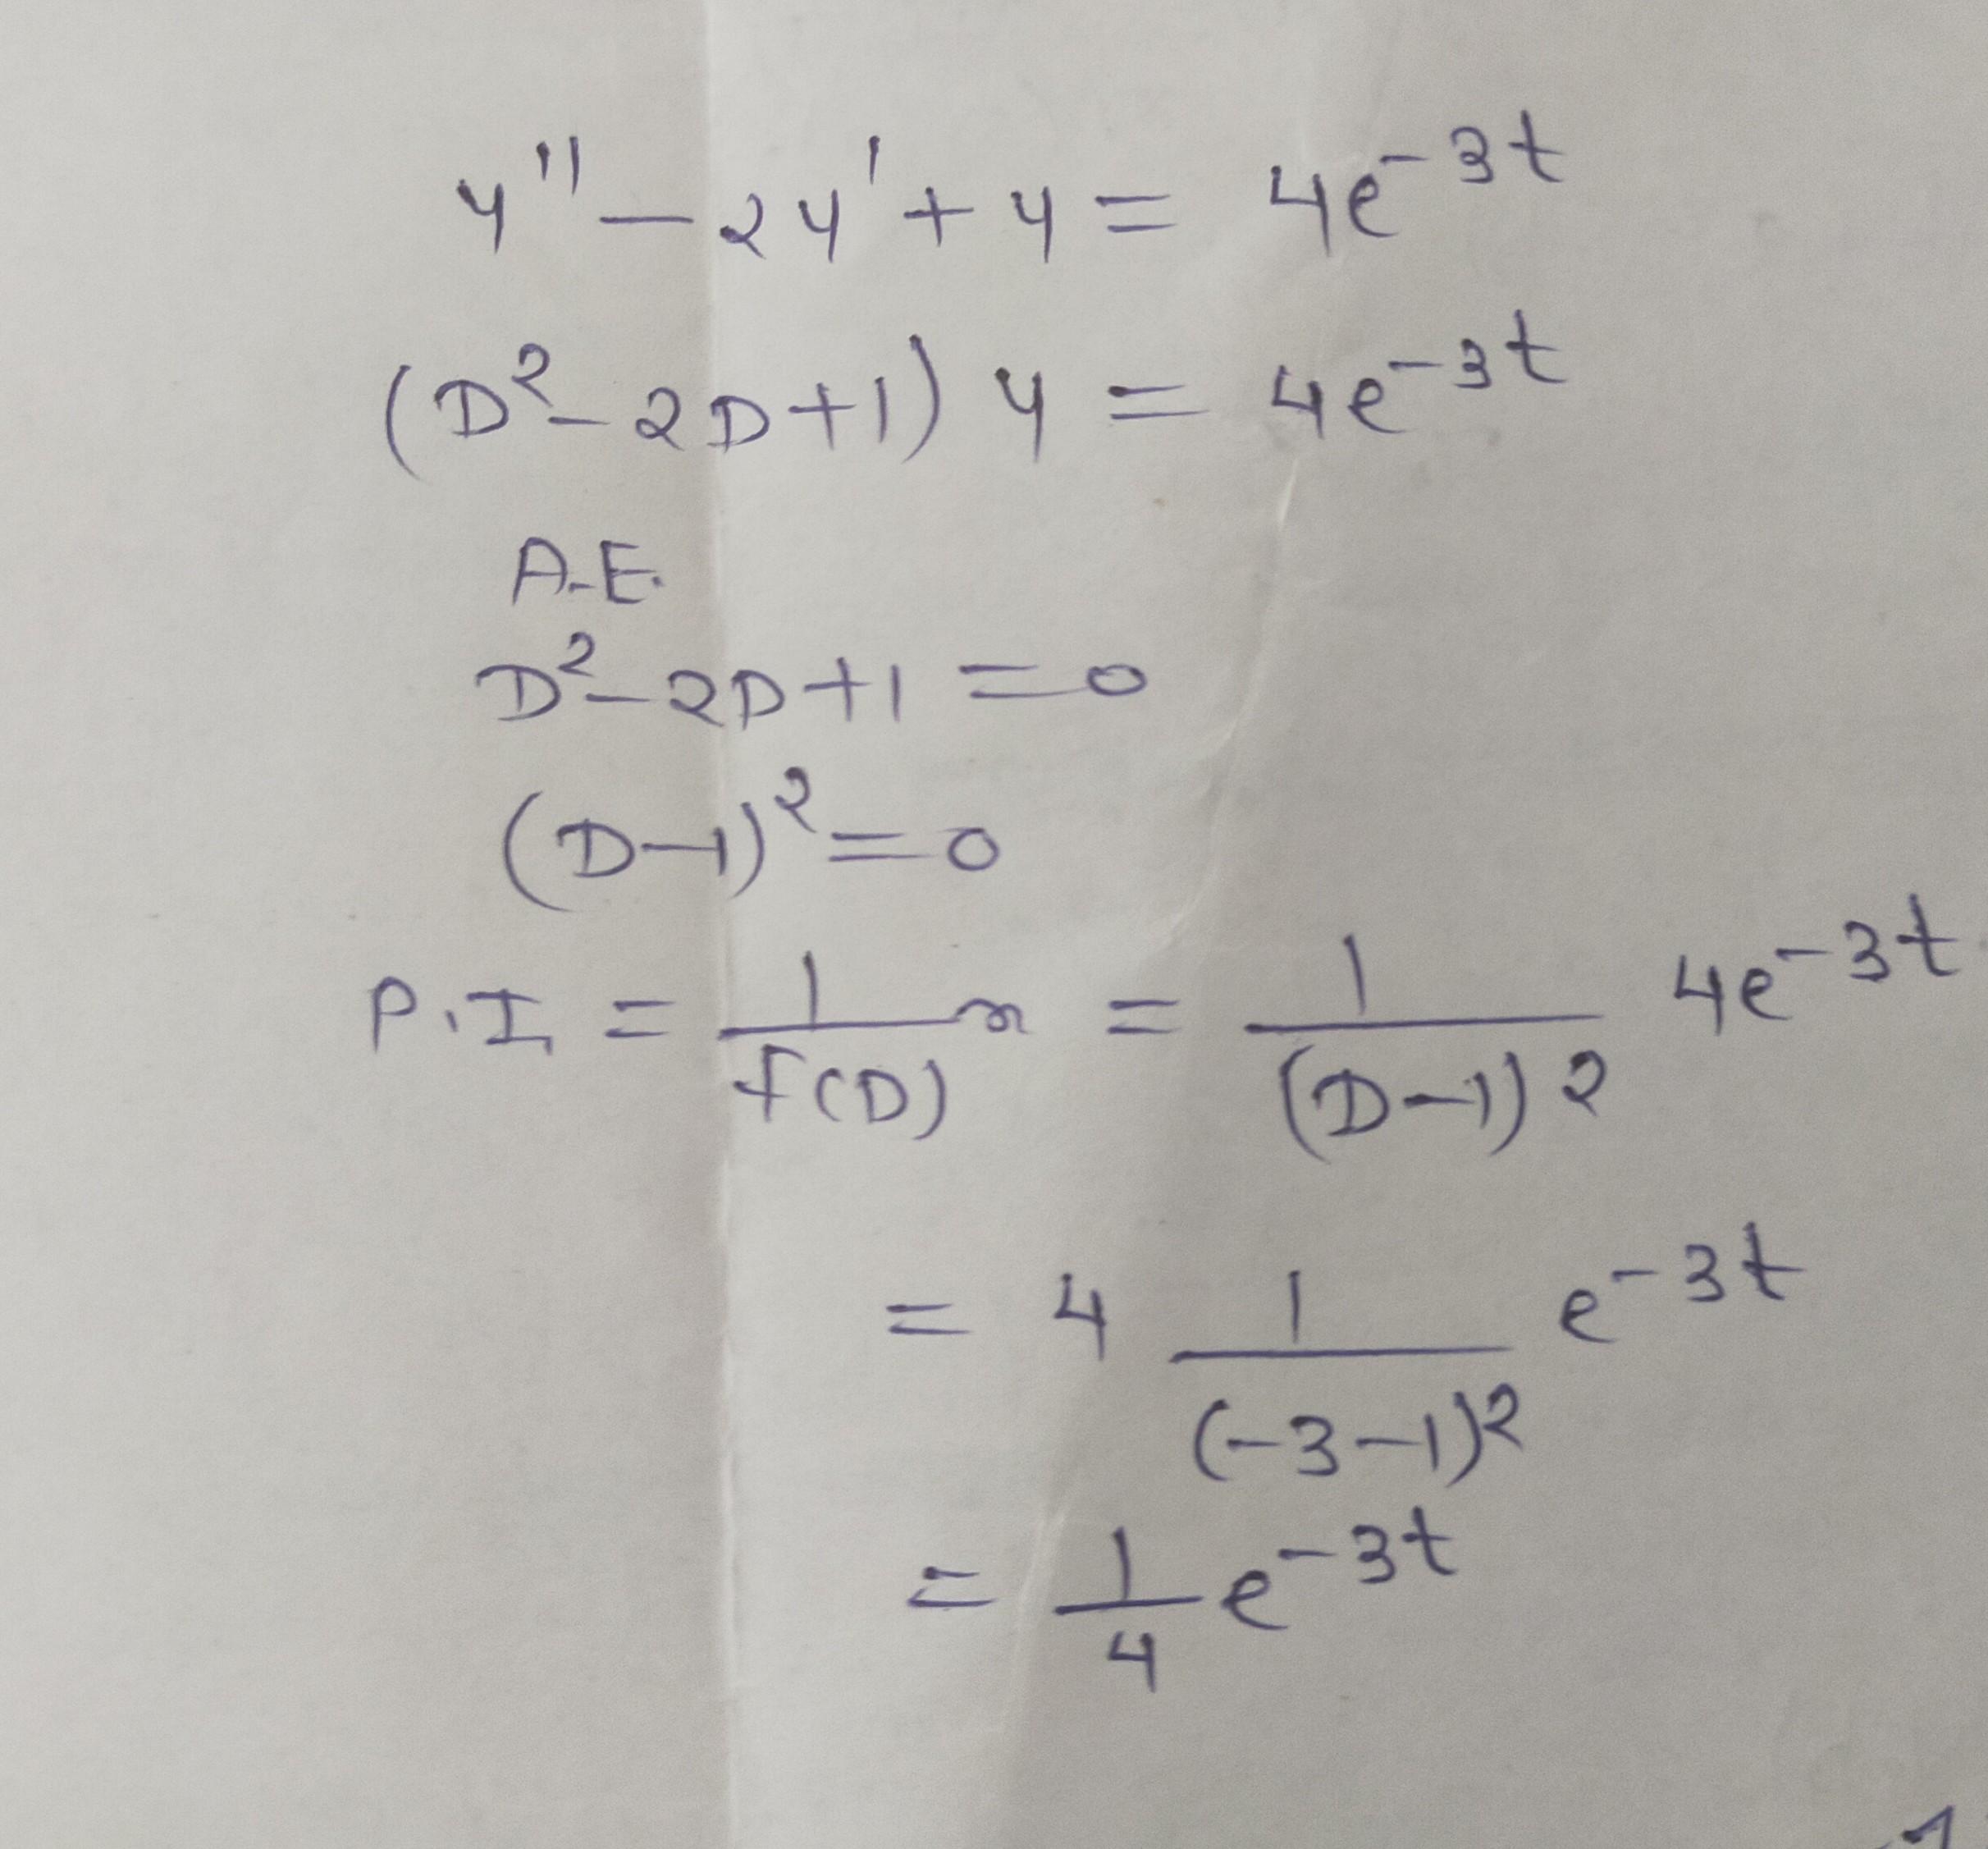 y'' - 2y' + y = 4e^{-3t}
(D^2 - 2D + 1) y = 4e^{-3t}
A.E.
D^2 - 2D + 1 = 0
(D-1)^2 = 0
P.I = \frac{1}{f(D)} x = \frac{1}{(D-1)^2} 4e^{-3t}
= 4 \frac{1}{(-3-1)^2} e^{-3t}
= \frac{1}{4} e^{-3t}